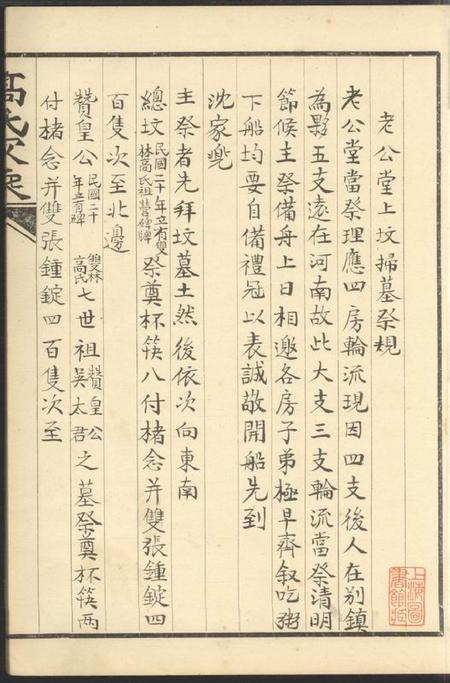 老公堂上坟掃墓祭規
老公堂當祭理應四房輪流現因四支後人在别鎮
為夥五支遠在河南故此大支三支輪流當祭清明
節候主祭備舟上日相邀各房子弟極早齊叙吃粥
下船均要自備禮冠以表誠敬開船先到
沈家兜
主祭者先拜坟墓土然後依次向東南
總坟民國二十年立有雙林高氏祖塋碑牌祭奠杯筷八付楮念并雙張錘錠四
百隻次至北邊
贊皇公民國二十年立有碑雙林高氏七世祖贊皇公吴太君之墓祭奠杯筷两
付楮念并雙張錘錠四百隻次至
高氏家乘
上海圖書館藏